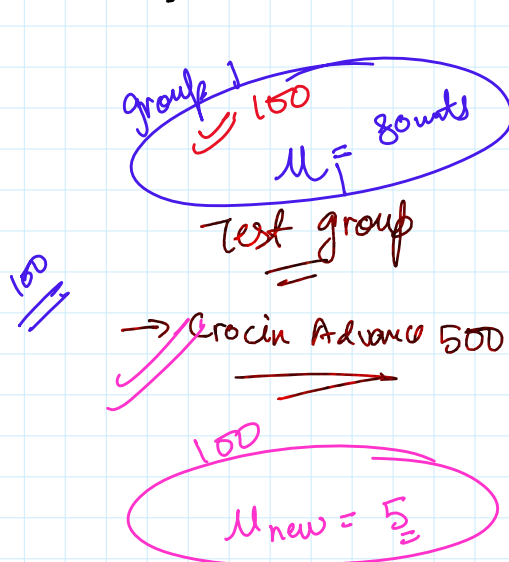 group 1
100
μ₁ = 80 units
Test group
100
→ Crocin Advance 500
100
μnew = 5